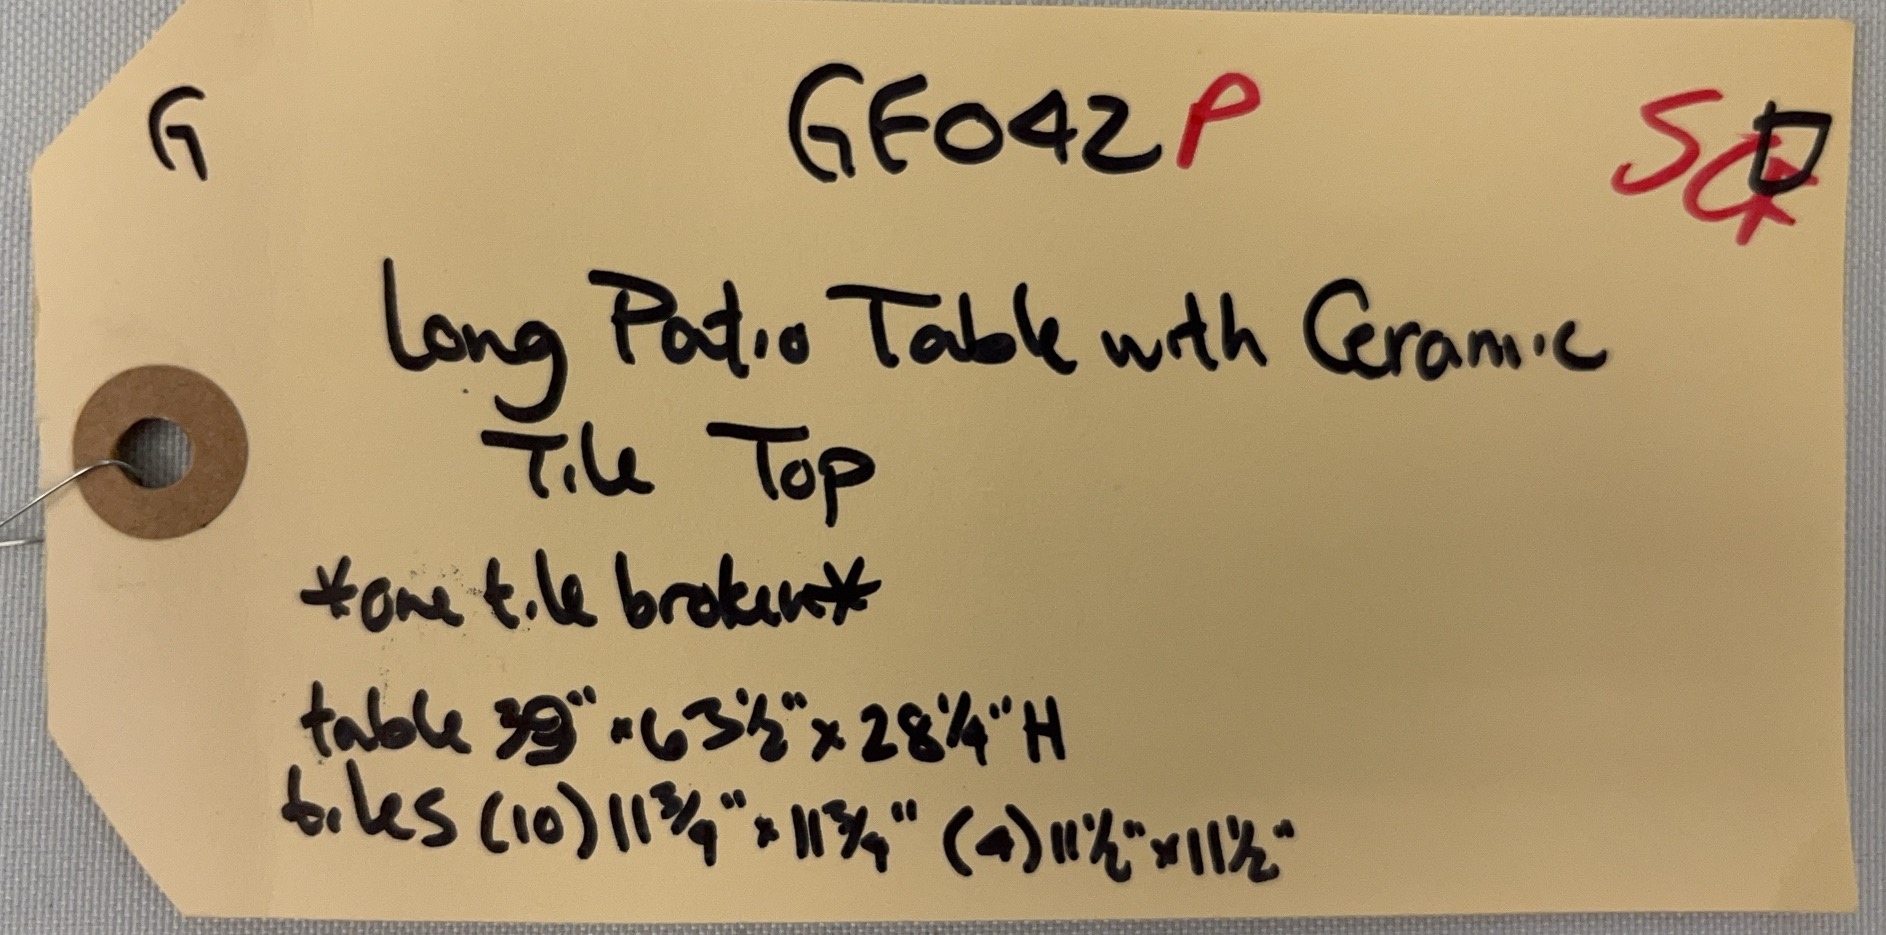 G GE042P
Long Patio Table with Ceramic
Tile Top
*one tile broken*
table 39" x 63 1/2" x 28 1/4" H
tiles (10) 11 3/4" x 11 3/4" (4) 11 1/2" x 11 1/2"